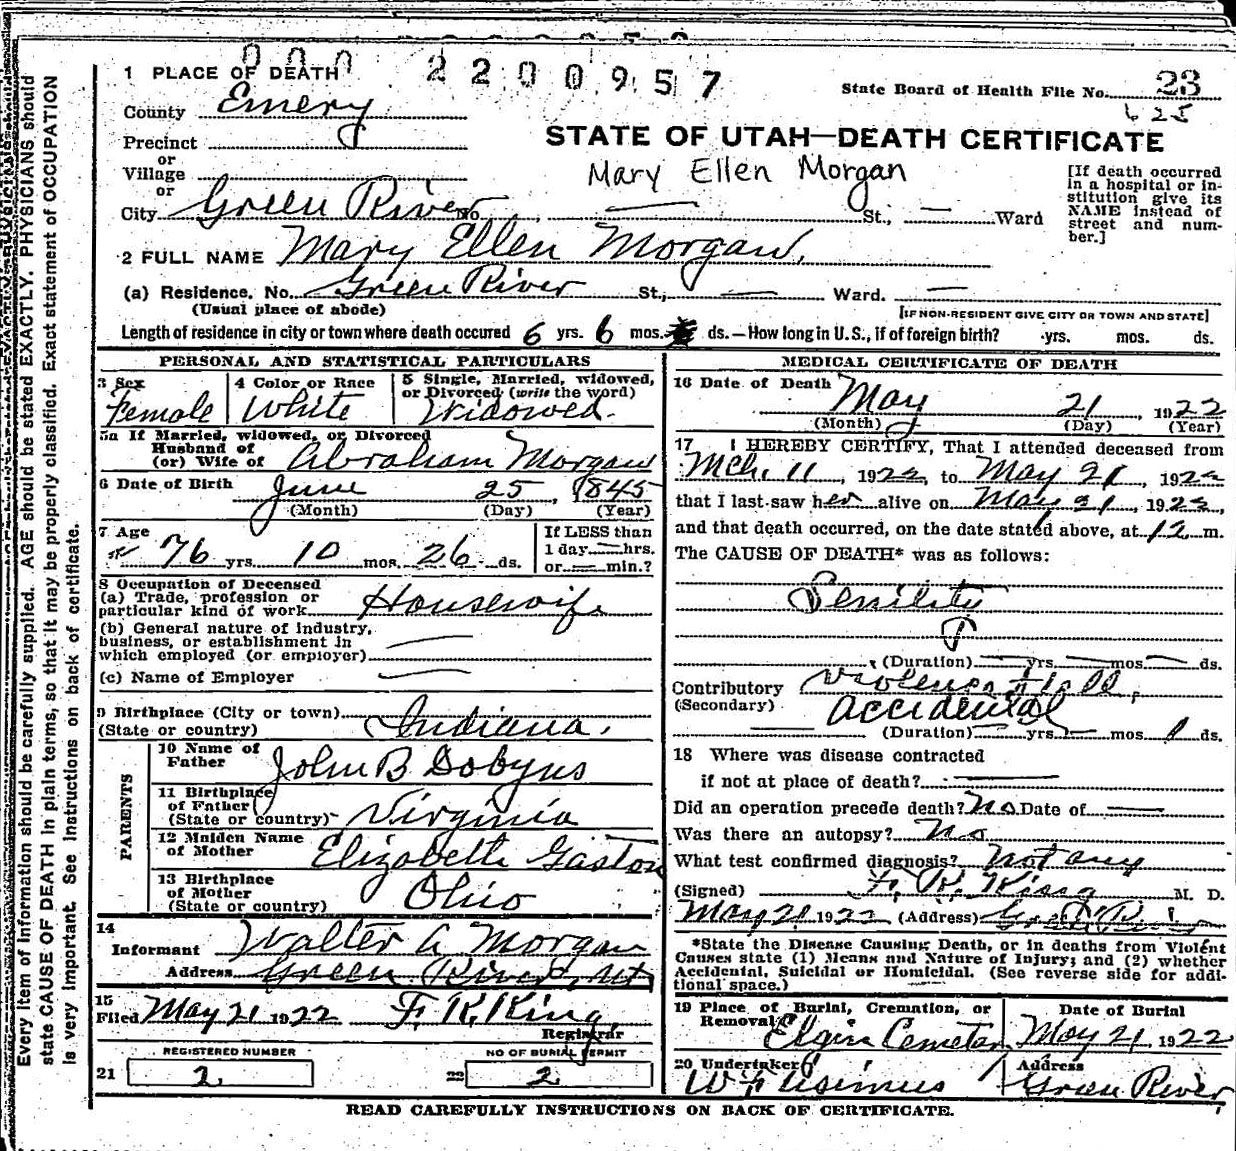 000 2200957
1 PLACE OF DEATH
State Board of Health File No. 23
625
County Emery
STATE OF UTAH—DEATH CERTIFICATE
Precinct
or
Village
or
Mary Ellen Morgan
City Green River No. — St., — Ward
[If death occurred in a hospital or in-
stitution give its
NAME instead of
street and num-
ber.]
2 FULL NAME Mary Ellen Morgan,
(a) Residence. No. Green River St., — Ward. —
(Usual place of abode)
[IF NON-RESIDENT GIVE CITY OR TOWN AND STATE]
Length of residence in city or town where death occured 6 yrs. 6 mos. ds.—How long in U.S., if of foreign birth? yrs. mos. ds.
PERSONAL AND STATISTICAL PARTICULARS
3 Sex
Female
4 Color or Race
White
5 Single, Married, widowed,
or Divorced (write the word)
Widowed.
5a If Married, widowed, or Divorced
Husband of
(or) Wife of Abraham Morgan
6 Date of Birth June 25, 1845
(Month) (Day) (Year)
7 Age
76 yrs. 10 mos. 26 ds.
If LESS than
1 day — hrs.
or — min.?
8 Occupation of Deceased
(a) Trade, profession or
particular kind of work Housewife
(b) General nature of industry,
business, or establishment in
which employed (or employer) —
(c) Name of Employer —
9 Birthplace (City or town)
(State or country) Indiana.
PARENTS
10 Name of
Father John B Dobyns
11 Birthplace
of Father
(State or country) Virginia
12 Maiden Name
of Mother Elizabeth Gaston
13 Birthplace
of Mother
(State or country) Ohio
14
Informant Walter A Morgan
Address Green River, Ut
15
Filed May 21 1922 F. K. King
Registrar
REGISTERED NUMBER
21 2
NO OF BURIAL PERMIT
22 2
MEDICAL CERTIFICATE OF DEATH
16 Date of Death May 21, 1922
(Month) (Day) (Year)
17 I HEREBY CERTIFY, That I attended deceased from
Mch. 11, 1922, to May 21, 1922
that I last saw her alive on May 21, 1922,
and that death occurred, on the date stated above, at 12 m.
The CAUSE OF DEATH* was as follows:
Senility
(Duration) — yrs. — mos. — ds.
Contributory Violence Fall,
(Secondary) Accidental
(Duration) — yrs. — mos. 1 ds.
18 Where was disease contracted
if not at place of death? —
Did an operation precede death? No Date of —
Was there an autopsy? No
What test confirmed diagnosis? Not any
(Signed) F. K. King M. D.
May 21 1922 (Address) Green River
*State the Disease Causing Death, or in deaths from Violent
Causes state (1) Means and Nature of Injury; and (2) whether
Accidental, Suicidal or Homicidal. (See reverse side for addi-
tional space.)
19 Place of Burial, Cremation, or
Removal Elgin Cemetery
Date of Burial
May 21, 1922
20 Undertaker
W F
Address
Green River
READ CAREFULLY INSTRUCTIONS ON BACK OF CERTIFICATE.
Every item of information should be carefully supplied. AGE should be stated EXACTLY. PHYSICIANS should
state CAUSE OF DEATH in plain terms, so that it may be properly classified. Exact statement of OCCUPATION
is very important. See instructions on back of certificate.